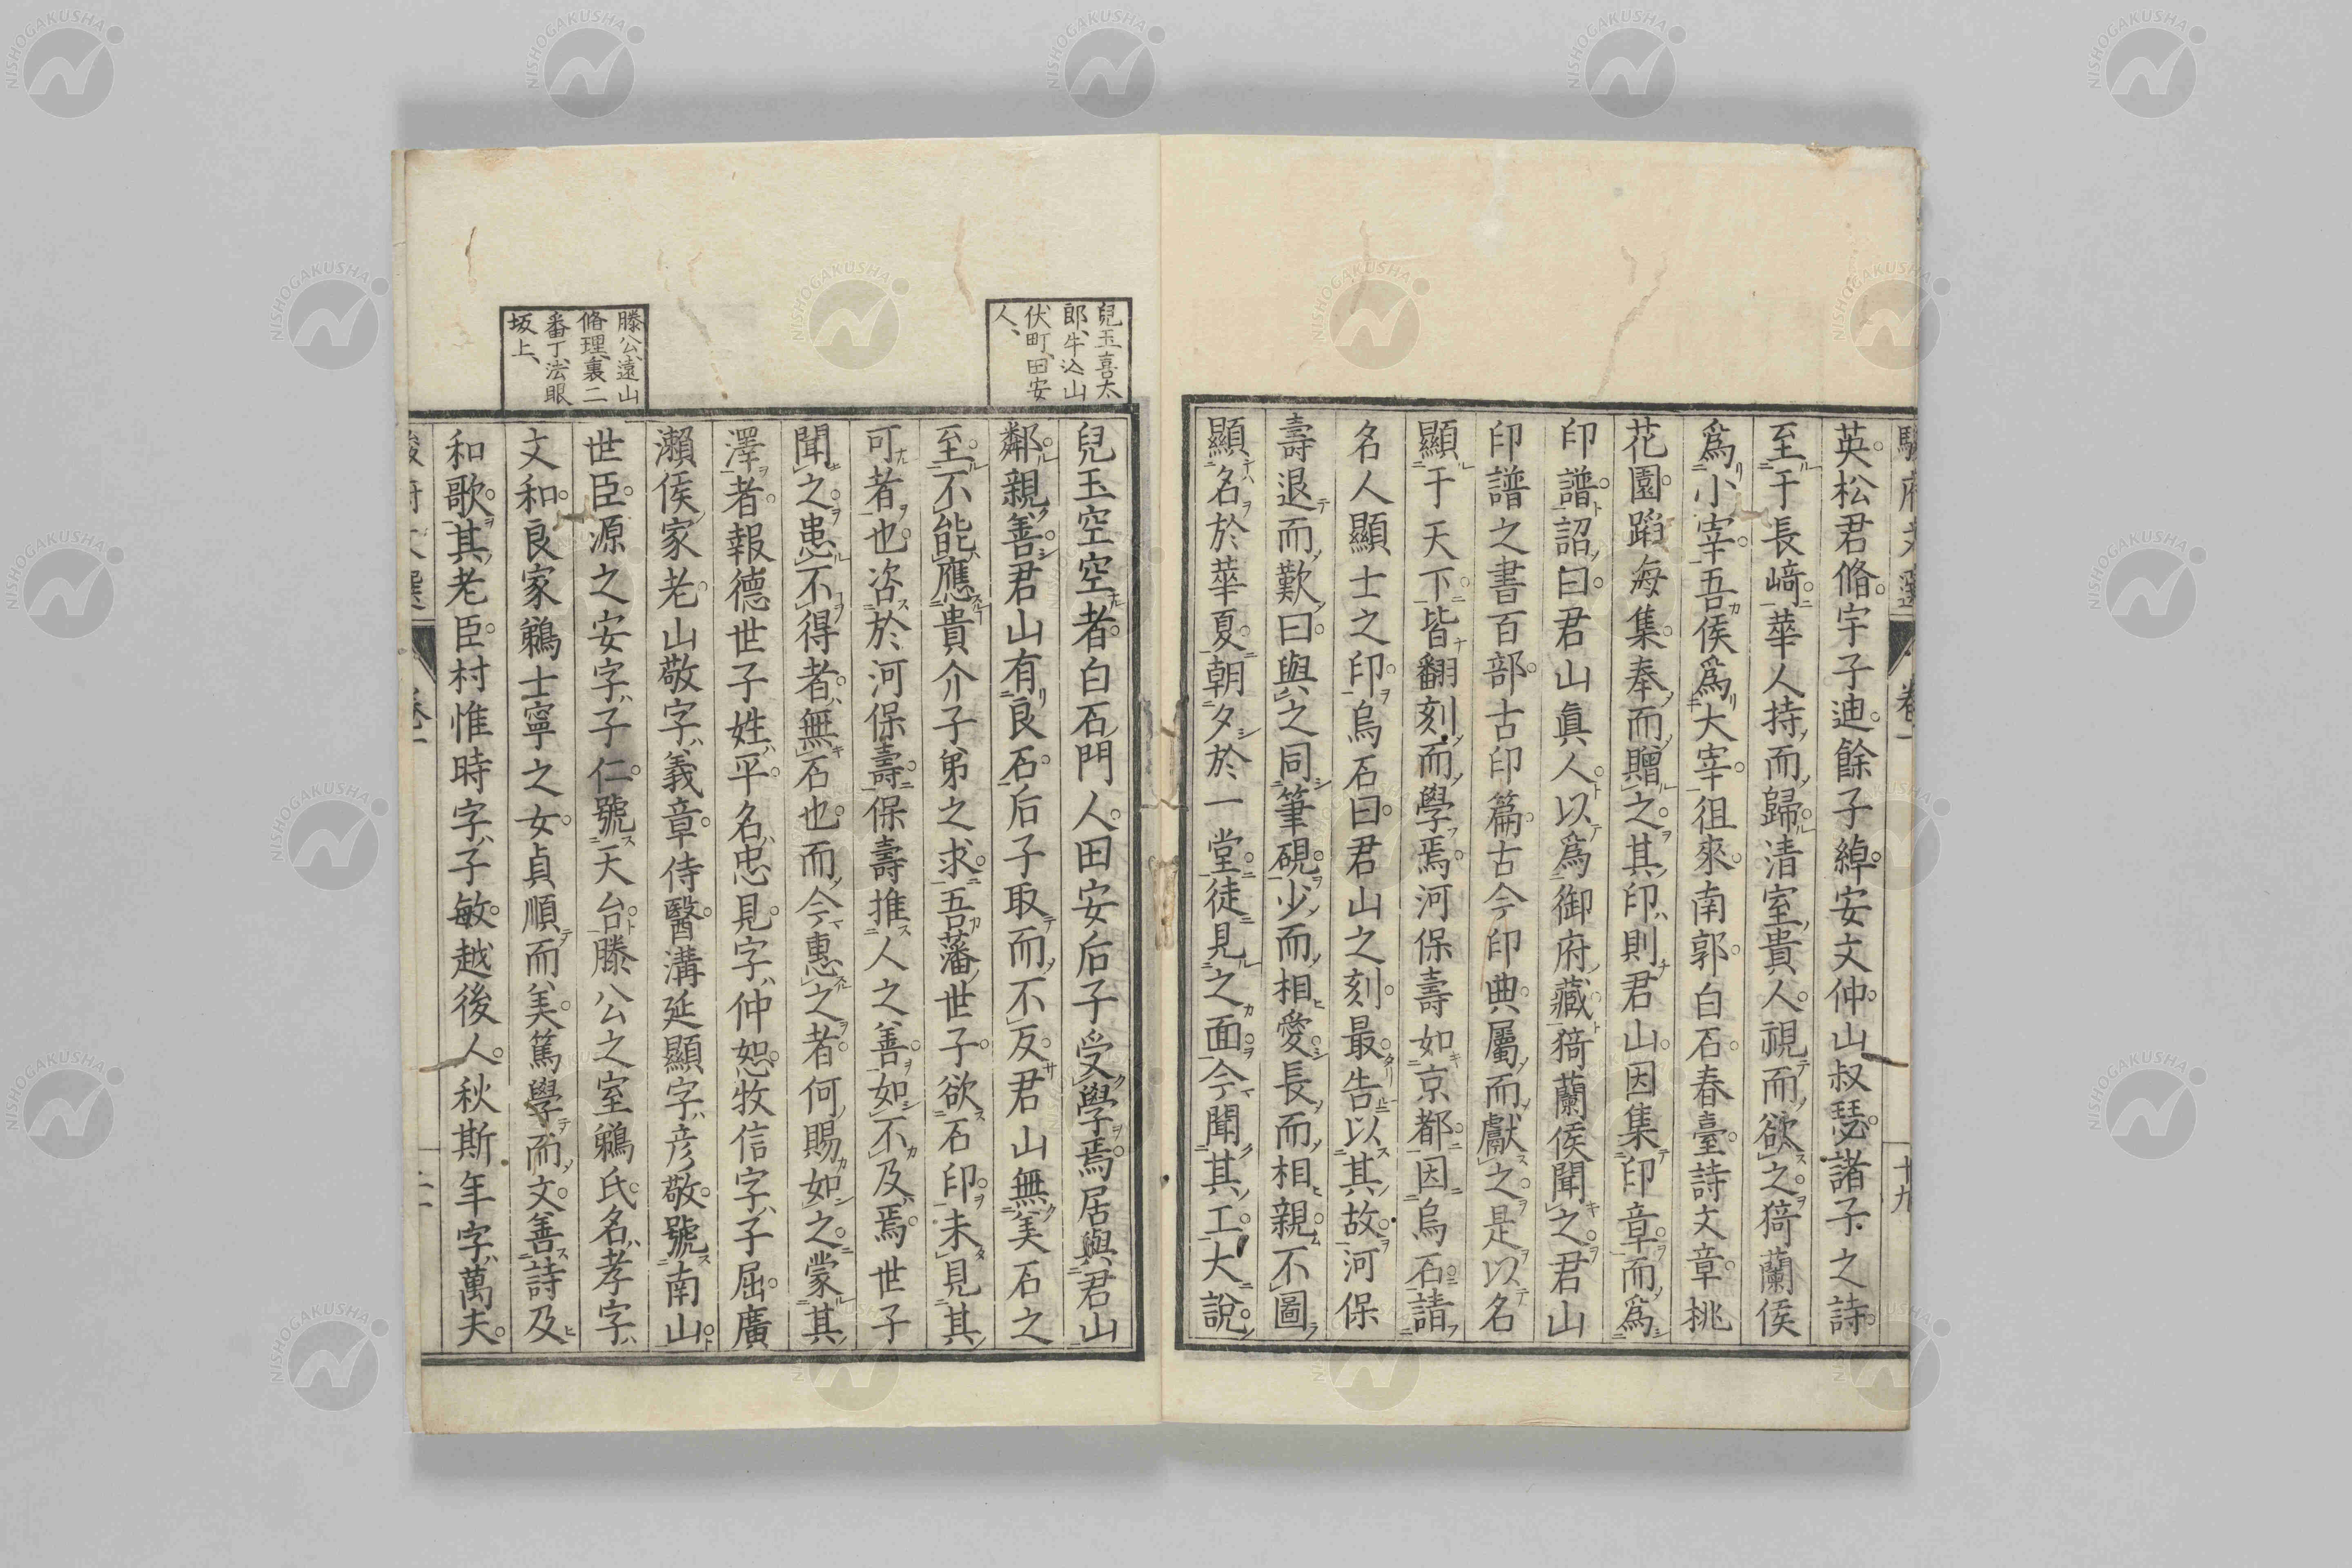 英松君脩宇子迪餘子綽安文仲山叔瑟諸子之詩
至于長﨑華人持而歸清室貴人視而欲之猗蘭侯
爲小宰吾侯爲大宰徂來南郭白石春臺詩文章桃
花園蹈海集奉而贈之其印則君山因集印章而爲
印譜詔曰君山眞人以爲御府藏猗蘭侯聞之君山
印譜之書百部古印篇古今印典屬而獻之是以名
顯于天下皆翻刻而學焉河保壽如京都因烏石請
名人顯士之印烏石曰君山之刻最告以其故河保
壽退而歎曰與之同筆硯少而相愛長而相親不圖
顯名於華夏朝夕於一堂徒見之面今聞其工大說
卷一
十九
兒玉喜太
郎、牛込山
伏町、田安
人、
兒玉空空者白石門人田安后子受學焉居與君山
鄰親善君山有良石后子取而不反君山無美石之
至不能應貴介子弟之求吾藩世子欲石印未見其
可者也咨於河保壽保壽推人之善如不及焉世子
聞之患不得者無石也而今惠之者何賜如之蒙其
澤者報德世子姓平名忠見字仲恕牧信字子屈廣
瀨侯家老山敬字義章侍醫溝延顯字彥敬號南山
滕公遠山
脩理裏二
番丁法眼
坂上、
世臣源之安字子仁號天台滕公之室鵜氏名孝字
文和良家鵜士寧之女貞順而美篤學而文善詩及
和歌其老臣村惟時字子敏越後人秋斯年字萬夫